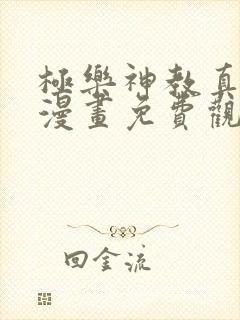 極樂神教真
漫畫免費觀
回金流